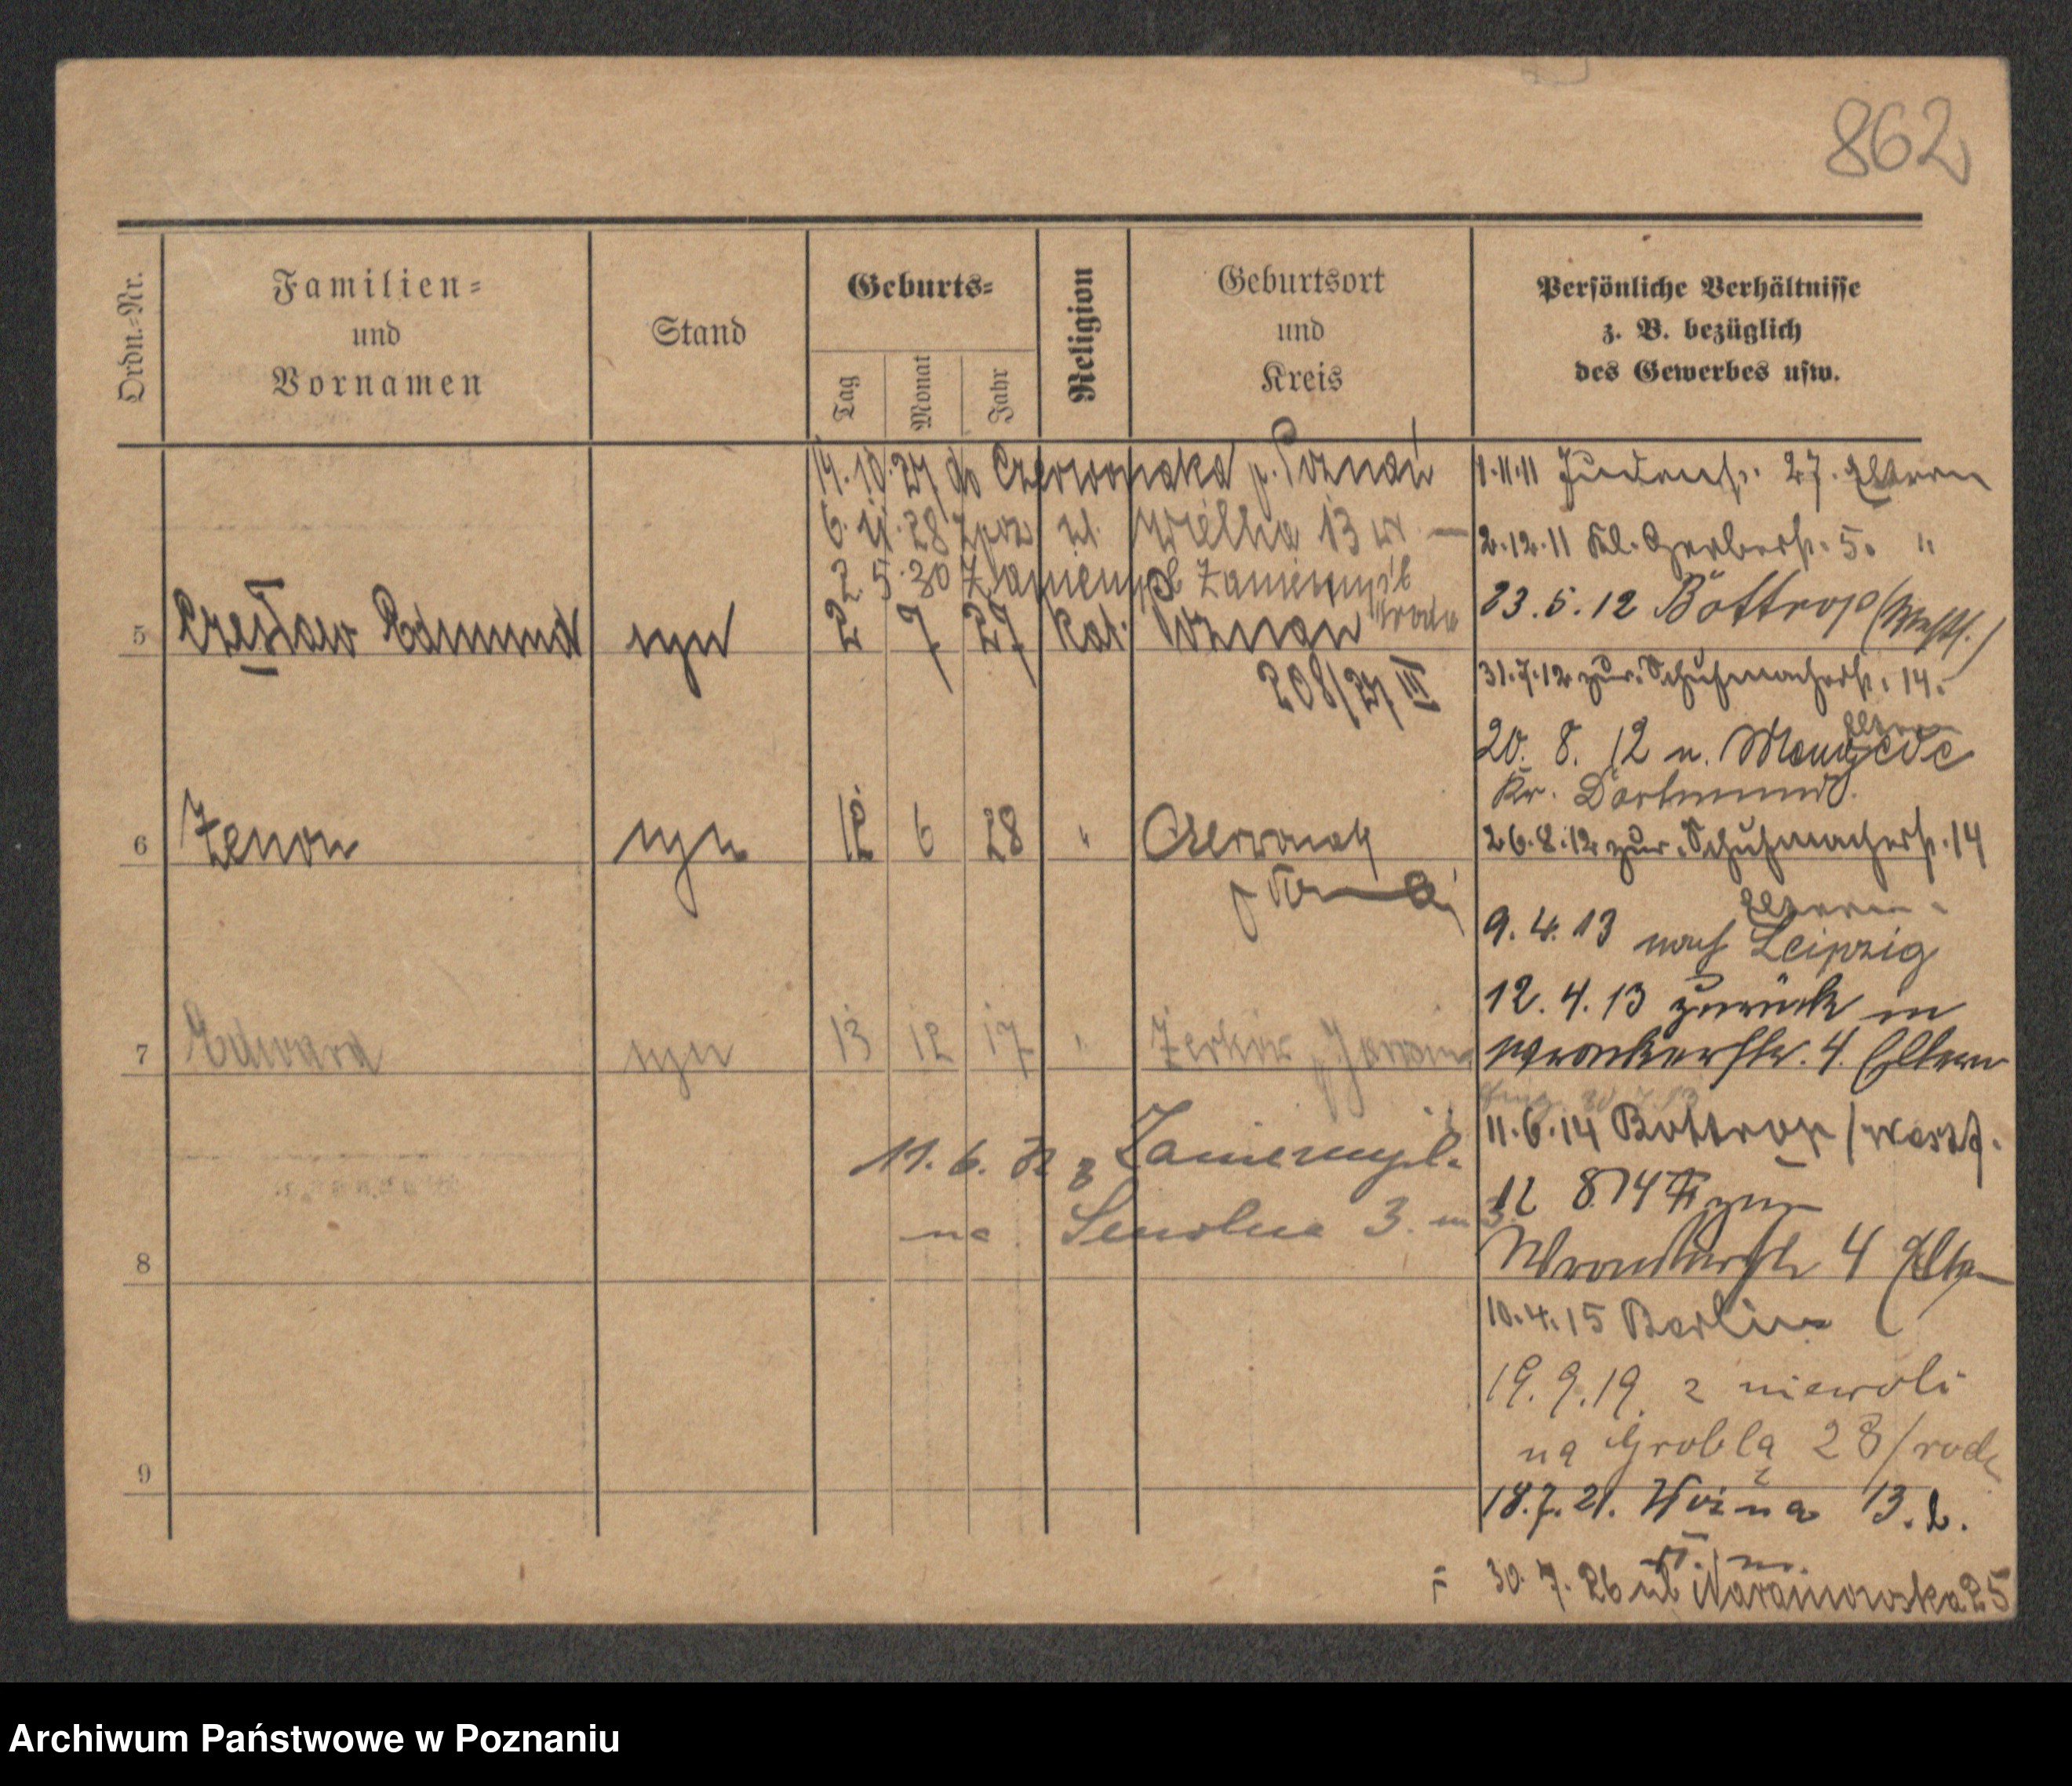 862
Ordn.-Nr.
Familien-
und
Vornamen
Stand
Geburts-
Tag
Monat
Jahr
Religion
Geburtsort
und
Kreis
Persönliche Verhältnisse
z. B. bezüglich
des Gewerbes usw.
14.10.27 do Czerwonaka p. Poznań
6. 11. 28 z poz ul. Wielka 13 w
2 5 30 Zaniemyśl Zaniemyśl
Środa
5 Czesław Edmund syn 2 7 27 kat. Poznań
208/27 III
6 Zenon syn 12 6 28 " Czerwonak
7 Edward syn 13 12 17 " Żerków Jarocin
11. 6. z Zaniemyśl
na 3. m 3
8
9
1.11.11 Judenstr. 27. Eltern
2.12.11 Kl. Gerberstr. 5. "
23.5.12 Bottrop (Westf.)
31.7.12 zur. Schuhmacherstr. 14.
Eltern
20. 8. 12 n. Mengede
Kr. Dortmund.
26.8.12 zur. Schuhmacherstr. 14
Eltern.
9.4.13 nach Leipzig
12.4.13 zurück in
Wronkerstr. 4. Eltern
11.6.14 Bottrop / Westf.
12 8 14 zur
Wronkerstr 4 Eltern
10.4.15 Berlin
19.9.19. z niewoli
na Groblą 28/rodz
18.7.21. Woźna 13. b.
30. 7. 26 ul Naramowska 25
Archiwum Państwowe w Poznaniu